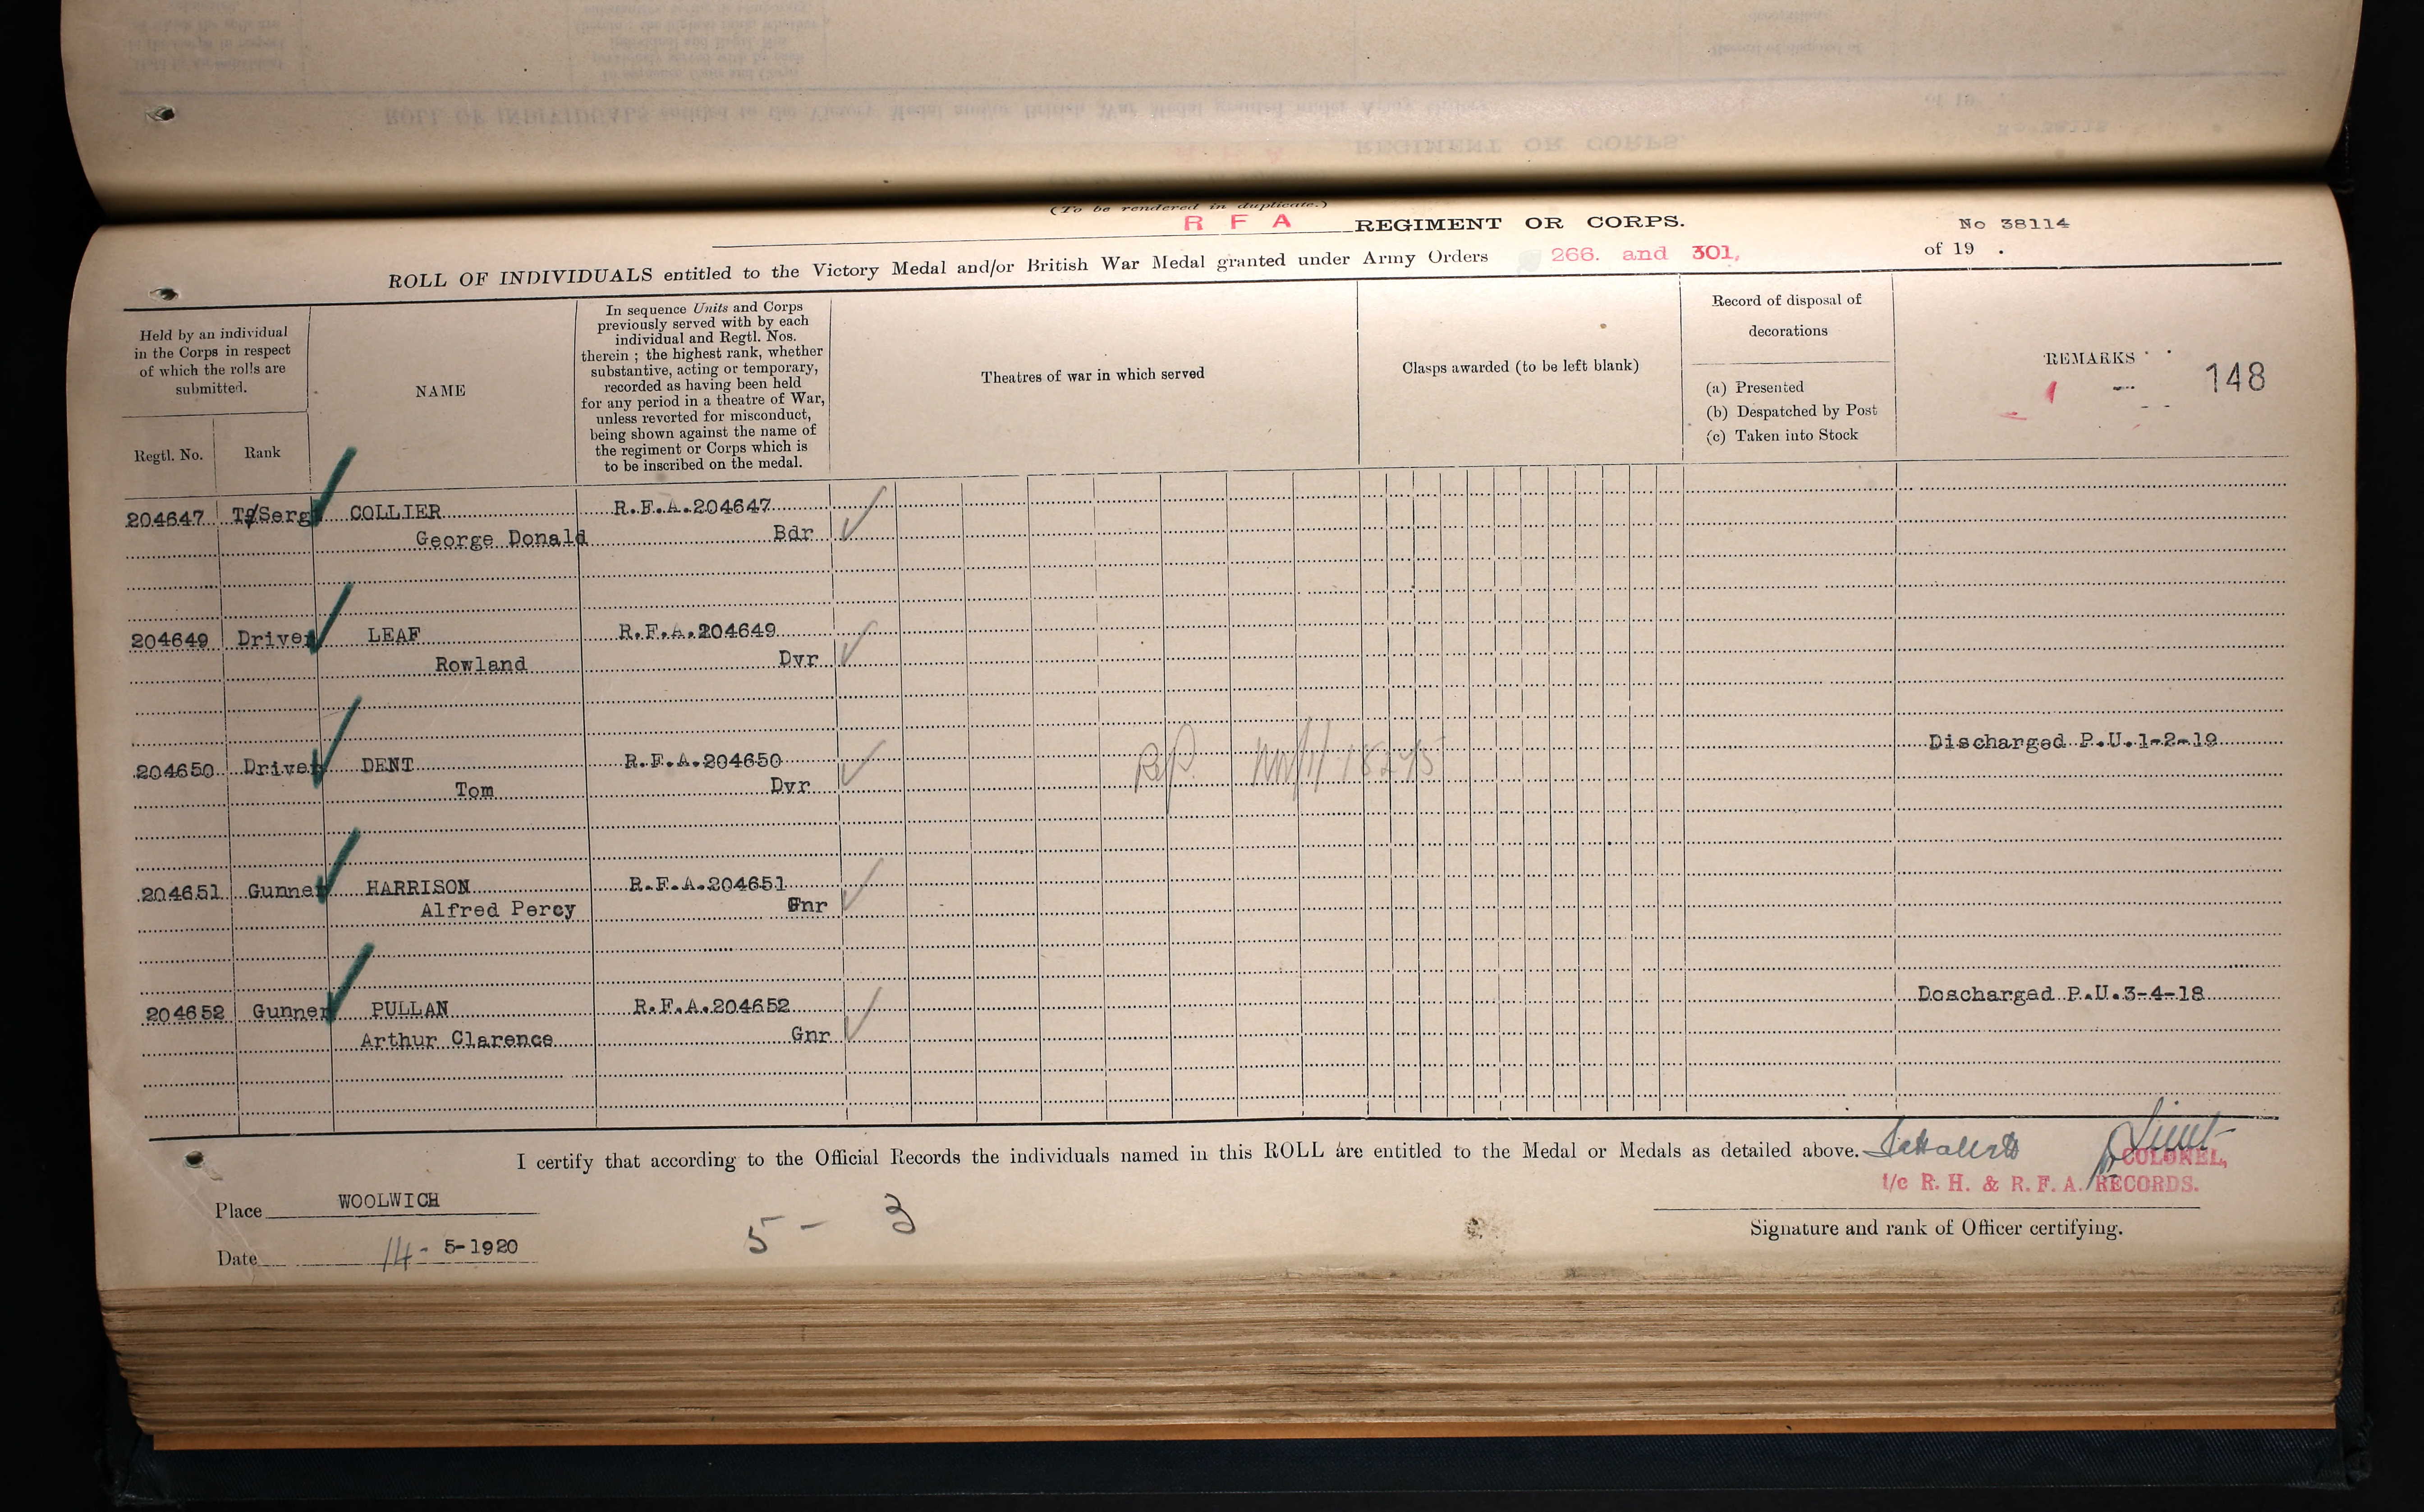 (To be rendered in duplicate.)
R F A REGIMENT OR CORPS.
No 38114
ROLL OF INDIVIDUALS entitled to the Victory Medal and/or British War Medal granted under Army Orders 266. and 301,
of 19 .
Held by an individual
in the Corps in respect
of which the rolls are
submitted.
Regtl. No.
Rank
NAME
In sequence Units and Corps
previously served with by each
individual and Regtl. Nos.
therein ; the highest rank, whether
substantive, acting or temporary,
recorded as having been held
for any period in a theatre of War,
unless reverted for misconduct,
being shown against the name of
the regiment or Corps which is
to be inscribed on the medal.
Theatres of war in which served
Clasps awarded (to be left blank)
Record of disposal of
decorations
(a) Presented
(b) Despatched by Post
(c) Taken into Stock
REMARKS
148
204647 T/Serg COLLIER R.F.A.204647
George Donald Bdr
204649 Driver LEAF R.F.A.204649
Rowland Dvr
Discharged P.U.1-2-19
204650 Driver DENT R.F.A.204650
Tom Dvr
204651 Gunner HARRISON R.F.A.204651
Alfred Percy Gnr
Doscharged P.U.3-4-18
204652 Gunner PULLAN R.F.A.204652
Arthur Clarence Gnr
I certify that according to the Official Records the individuals named in this ROLL are entitled to the Medal or Medals as detailed above.
Lieut
COLONEL,
i/c R. H. & R. F. A. RECORDS.
Place WOOLWICH
5 - 3
Signature and rank of Officer certifying.
Date 14- 5-1920